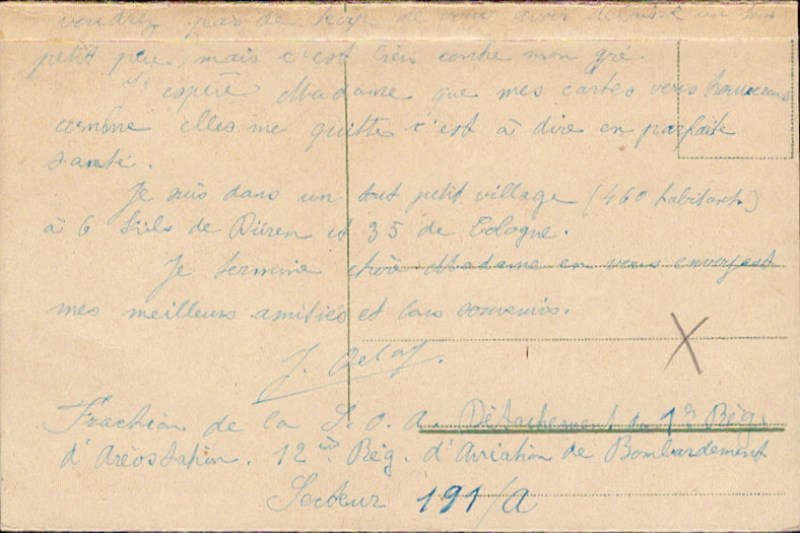 voudrez pas de trop de vous avoir délaissé un tout
petit peu, mais c'est bien contre mon gré.
J'espère Madame que mes cartes vous trouverons
comme elles me quitte c'est à dire en parfaite
santé.
Je suis dans un tout petit village (460 habitants)
à 6 kils de Düren et 35 de Cologne.
Je termine chère Madame en vous envoyant
mes meilleurs amitiés et bons souvenirs.
J.
Fraction de la S.O.A. Détachement du 1er Rég.
d'Aréostation. 12me Rég. d'Aviation de Bombardement
Secteur 191/A